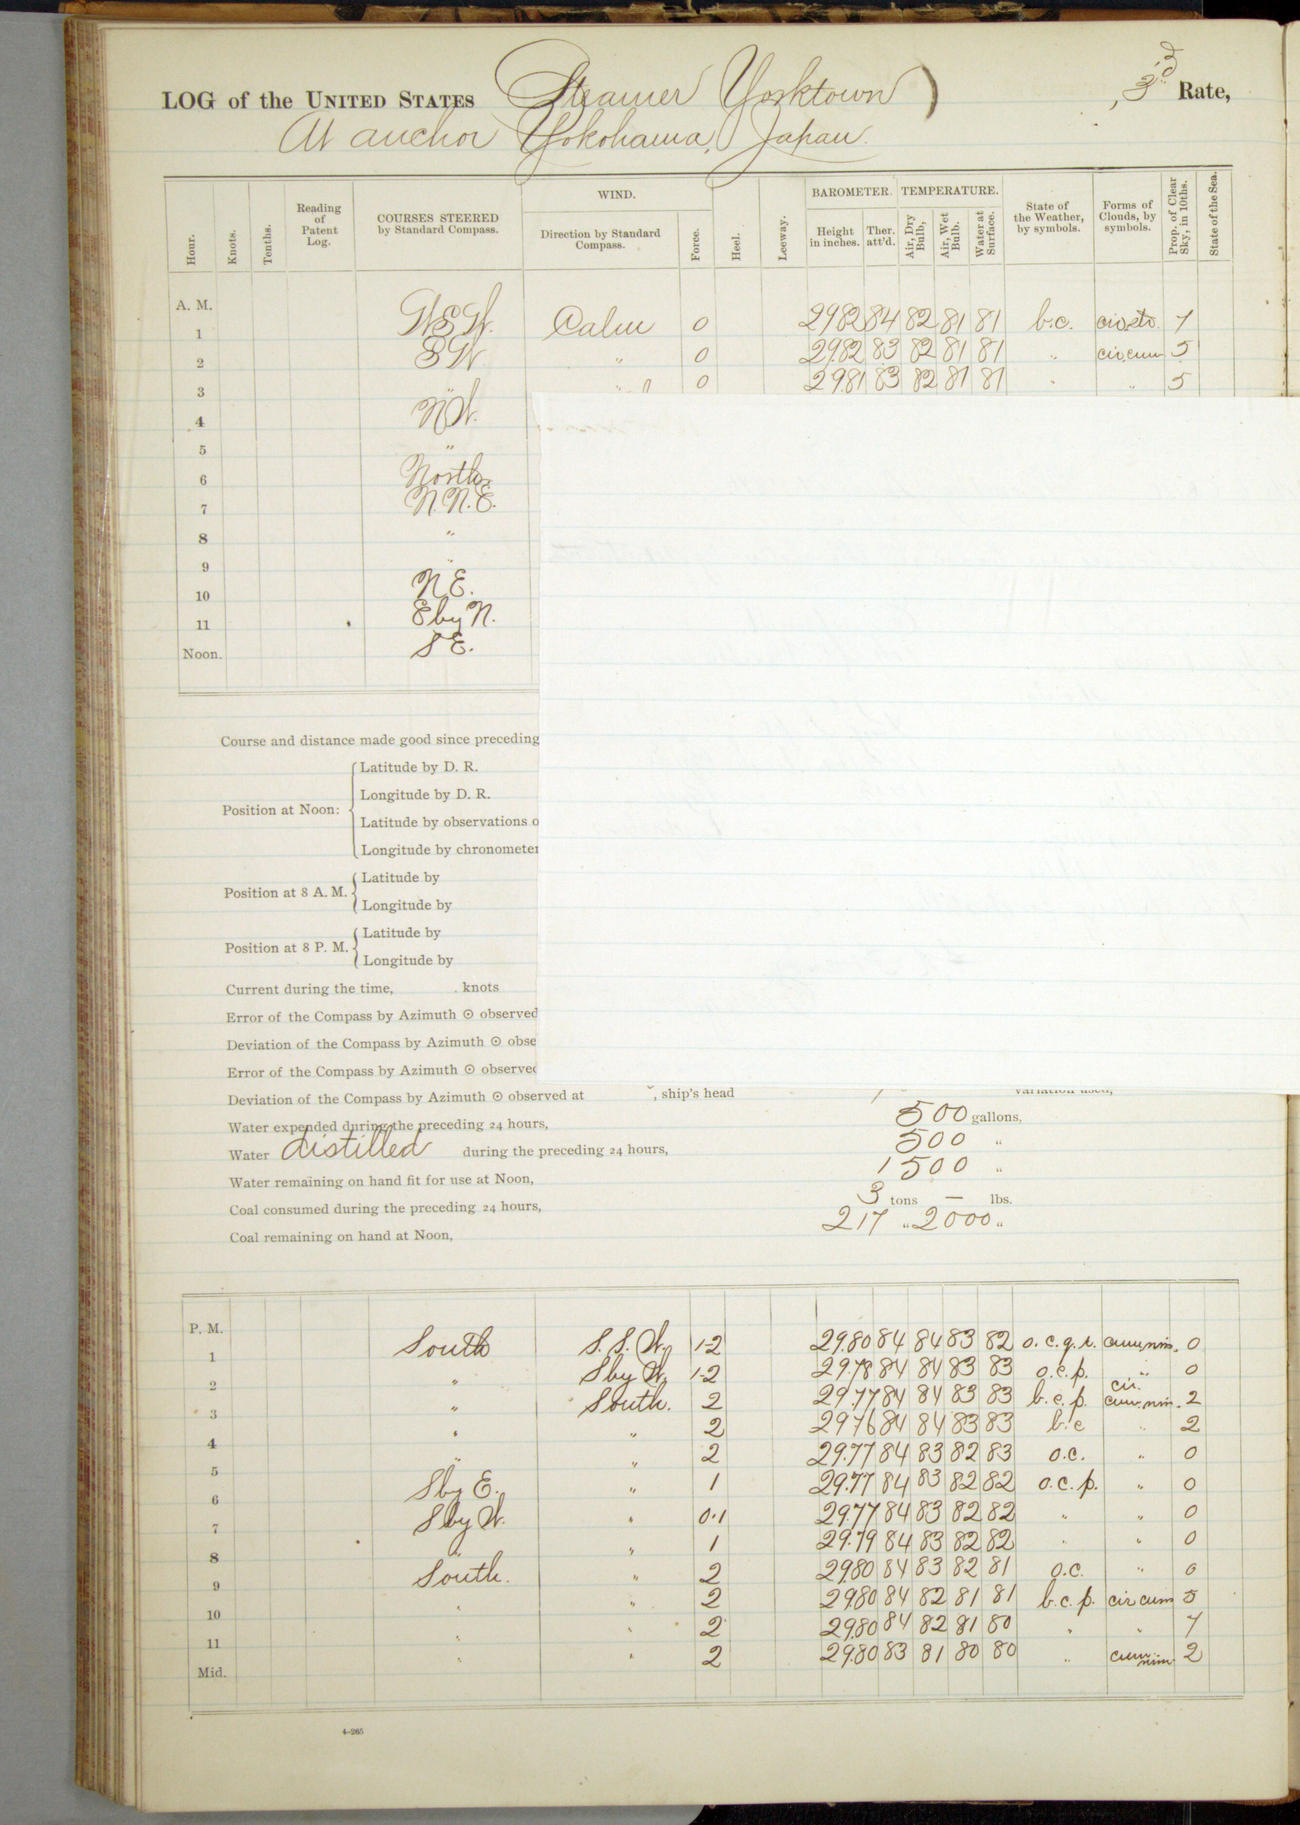 LOG of the UNITED STATES Steamer Yorktown, 3rd Rate,
At anchor Yokohama, Japan.
Hour. Knots. Tenths. Reading of Patent Log. COURSES STEERED by Standard Compass. WIND. Direction by Standard Compass. Force. Heel. Leeway. BAROMETER. Height in inches. Ther. att'd. TEMPERATURE. Air, Dry Bulb, Air, Wet Bulb. Water at Surface. State of the Weather, by symbols. Forms of Clouds, by symbols. Prop. of Clear Sky, in 10ths. State of the Sea.
A. M.
1 W.S.W. Calm 0 29.82 84 82 81 81 b.c. cir.str. 7
2 S.W. " 0 29.82 83 82 81 81 " cir.cum 5
3 " " 0 29.81 83 82 81 81 " " 5
4 N.W.
5 "
6 North
7 N.N.E.
8 "
9 "
10 N.E.
11 E by N.
Noon. S E.
Course and distance made good since preceding
Position at Noon:
Latitude by D. R.
Longitude by D. R.
Latitude by observations o
Longitude by chronometer
Position at 8 A. M.
Latitude by
Longitude by
Position at 8 P. M.
Latitude by
Longitude by
Current during the time, knots
Error of the Compass by Azimuth ⊙ observed
Deviation of the Compass by Azimuth ⊙ obse
Error of the Compass by Azimuth ⊙ observed
Deviation of the Compass by Azimuth ⊙ observed at , ship's head variation used,
Water expended during the preceding 24 hours, 500 gallons,
Water distilled during the preceding 24 hours, 500 "
Water remaining on hand fit for use at Noon, 1500 "
Coal consumed during the preceding 24 hours, 3 tons — lbs.
Coal remaining on hand at Noon, 217 " 2000 "
P. M.
1 South S.S.W. 1-2 29.80 84 84 83 82 o.c.q.r. cum.nim. 0
2 " S by W. 1-2 29.78 84 84 83 83 o.c.p. " 0
3 " South. 2 29.77 84 84 83 83 b.c.p. cir. cum.nim. 2
4 " " 2 29.76 84 84 83 83 b.c " 2
5 " " 2 29.77 84 83 82 83 o.c. " 0
6 S by E. " 1 29.77 84 83 82 82 o.c.p. " 0
7 S by W. " 0.1 29.77 84 83 82 82 " " 0
8 " " 1 29.79 84 83 82 82 " " 0
9 South. " 2 29.80 84 83 82 81 o.c. " 0
10 " " 2 29.80 84 82 81 81 b.c.p. cir cum 5
11 " " 2 29.80 84 82 81 80 " " 7
Mid. " " 2 29.80 83 81 80 80 " cum nim. 2
4-265